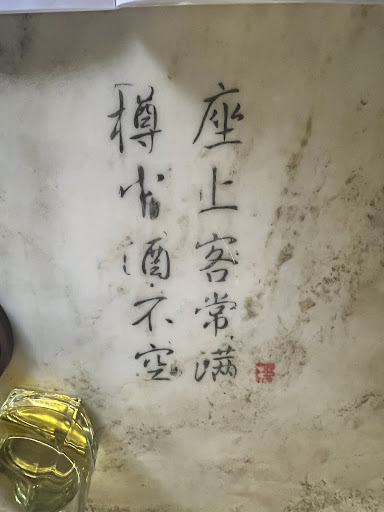 座上客常满
樽酒不空